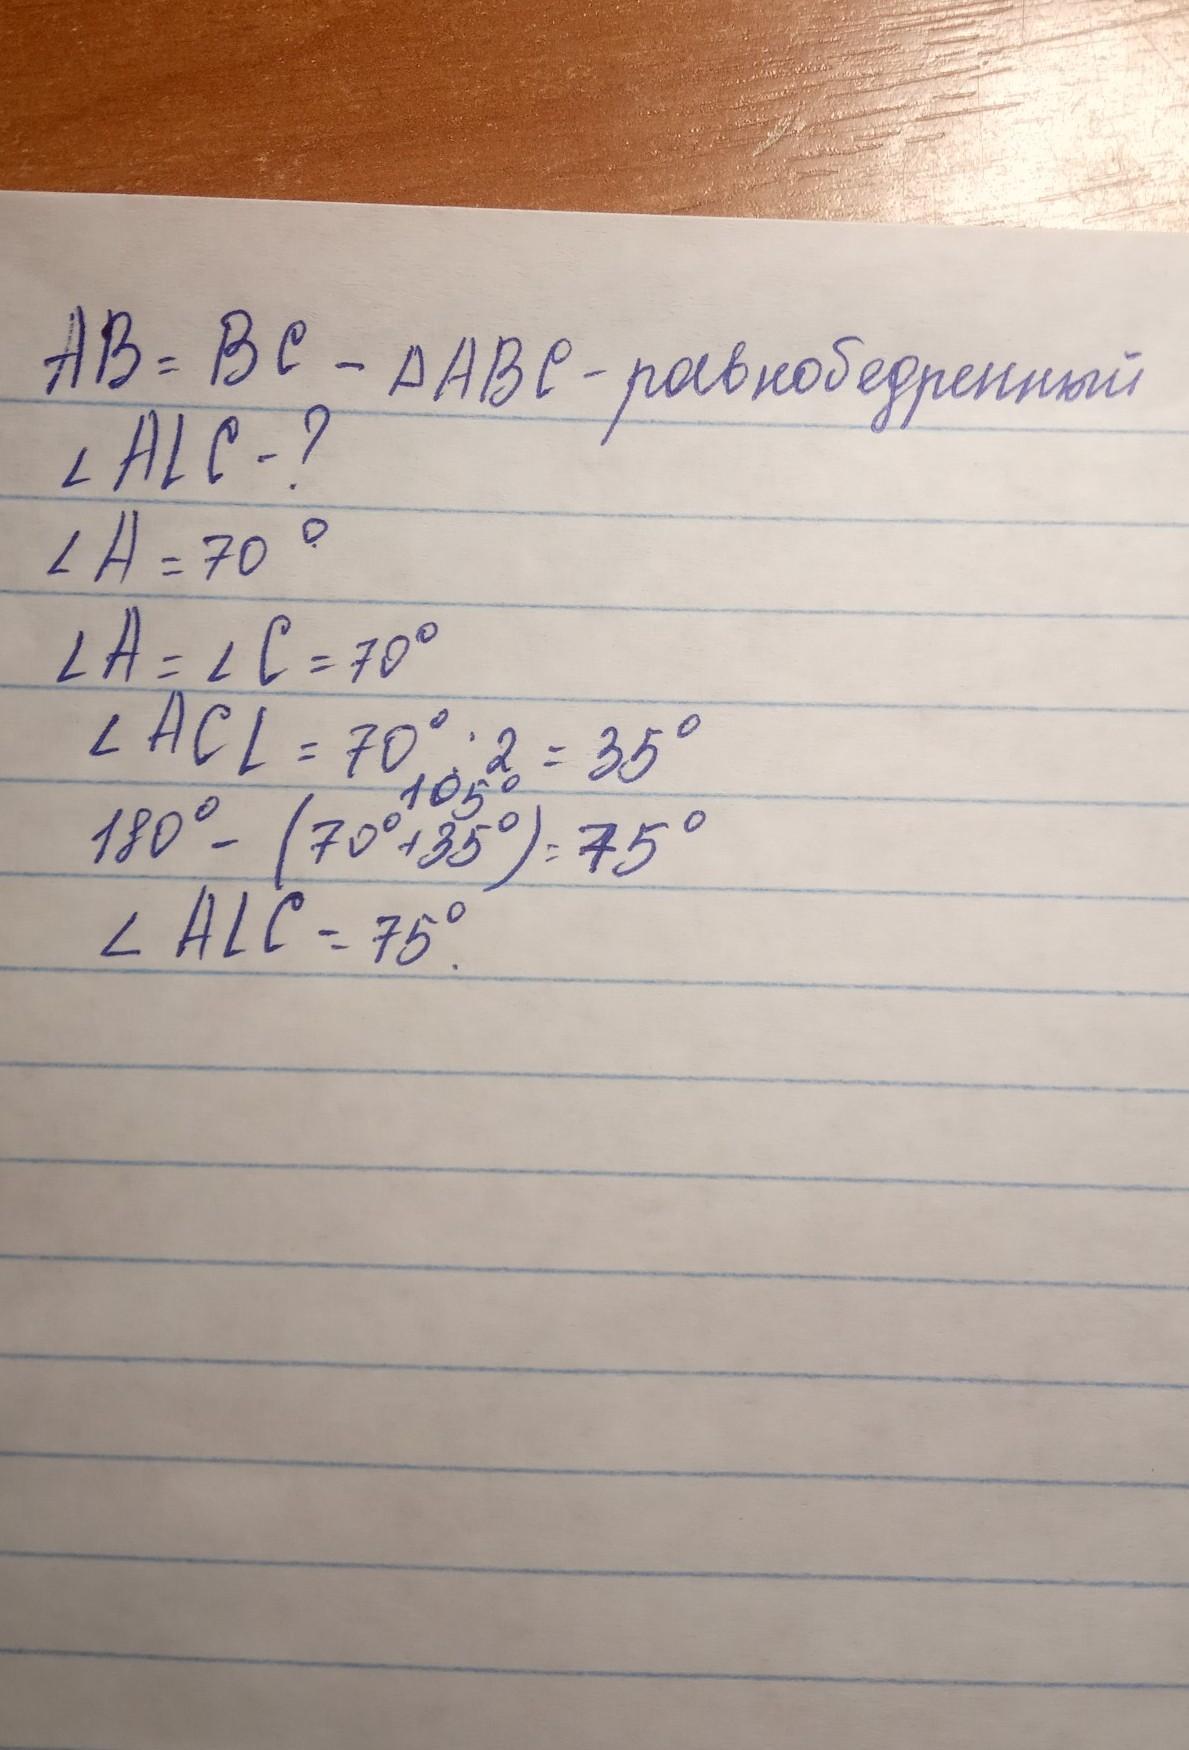 AB = BC - ΔABC - равнобедренный
∠ALC - ?
∠A = 70°
∠A = ∠C = 70°
∠ACL = 70° : 2 = 35°
105°
180° - (70° + 35°) = 75°
∠ALC = 75°.